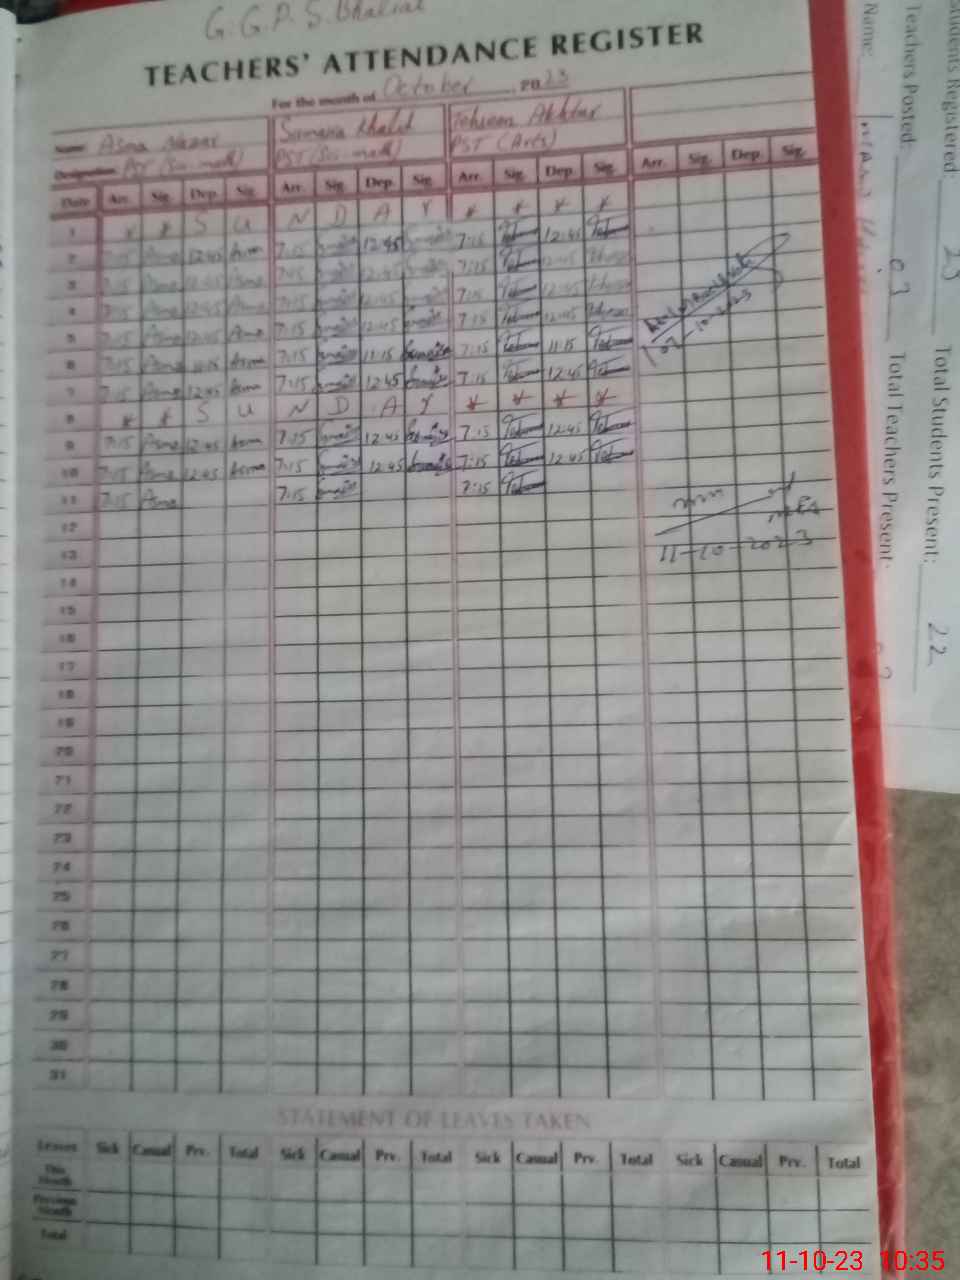 G.G.P.S. Bhakral
TEACHERS' ATTENDANCE REGISTER
For the month of October, 2023
Name: Asma Nazar Sumaira Khalid Tehseen Akhtar
Designation: PST (Sci-math) PST (Sci-math) PST (Arts)
Date Arr. Sig. Dep. Sig. Arr. Sig. Dep. Sig. Arr. Sig. Dep. Sig. Arr. Sig. Dep. Sig.
1 * * S U N D A Y * * * *
2 7:15 Asma 12:45 Asma 7:15 12:45 7:15 12:45
3 7:15 Asma 12:45 Asma 7:15 12:45 7:15 12:45
4 7:15 Asma 12:45 Asma 7:15 12:45 7:15 12:45
5 7:15 Asma 12:45 Asma 7:15 12:45 7:15 12:45
6 7:15 Asma 11:15 Asma 7:15 11:15 7:15 11:15
7 7:15 Asma 12:45 Asma 7:15 12:45 7:15 12:45
8 * * S U N D A Y * * * *
9 7:15 Asma 12:45 Asma 7:15 12:45 7:15 12:45
10 7:15 Asma 12:45 Asma 7:15 12:45 7:15 12:45
11 7:15 Asma 7:15 7:15
11-10-2023
12
13
14
15
16
17
18
19
20
21
22
23
24
25
26
27
28
29
30
31
STATEMENT OF LEAVES TAKEN
Leaves Sick Casual Prv. Total Sick Casual Prv. Total Sick Casual Prv. Total Sick Casual Prv. Total
This Month
Previous Month
Total
Students Registered: 23
Total Students Present: 22
Teachers Posted: 03
Total Teachers Present:
Name:
11-10-23 10:35